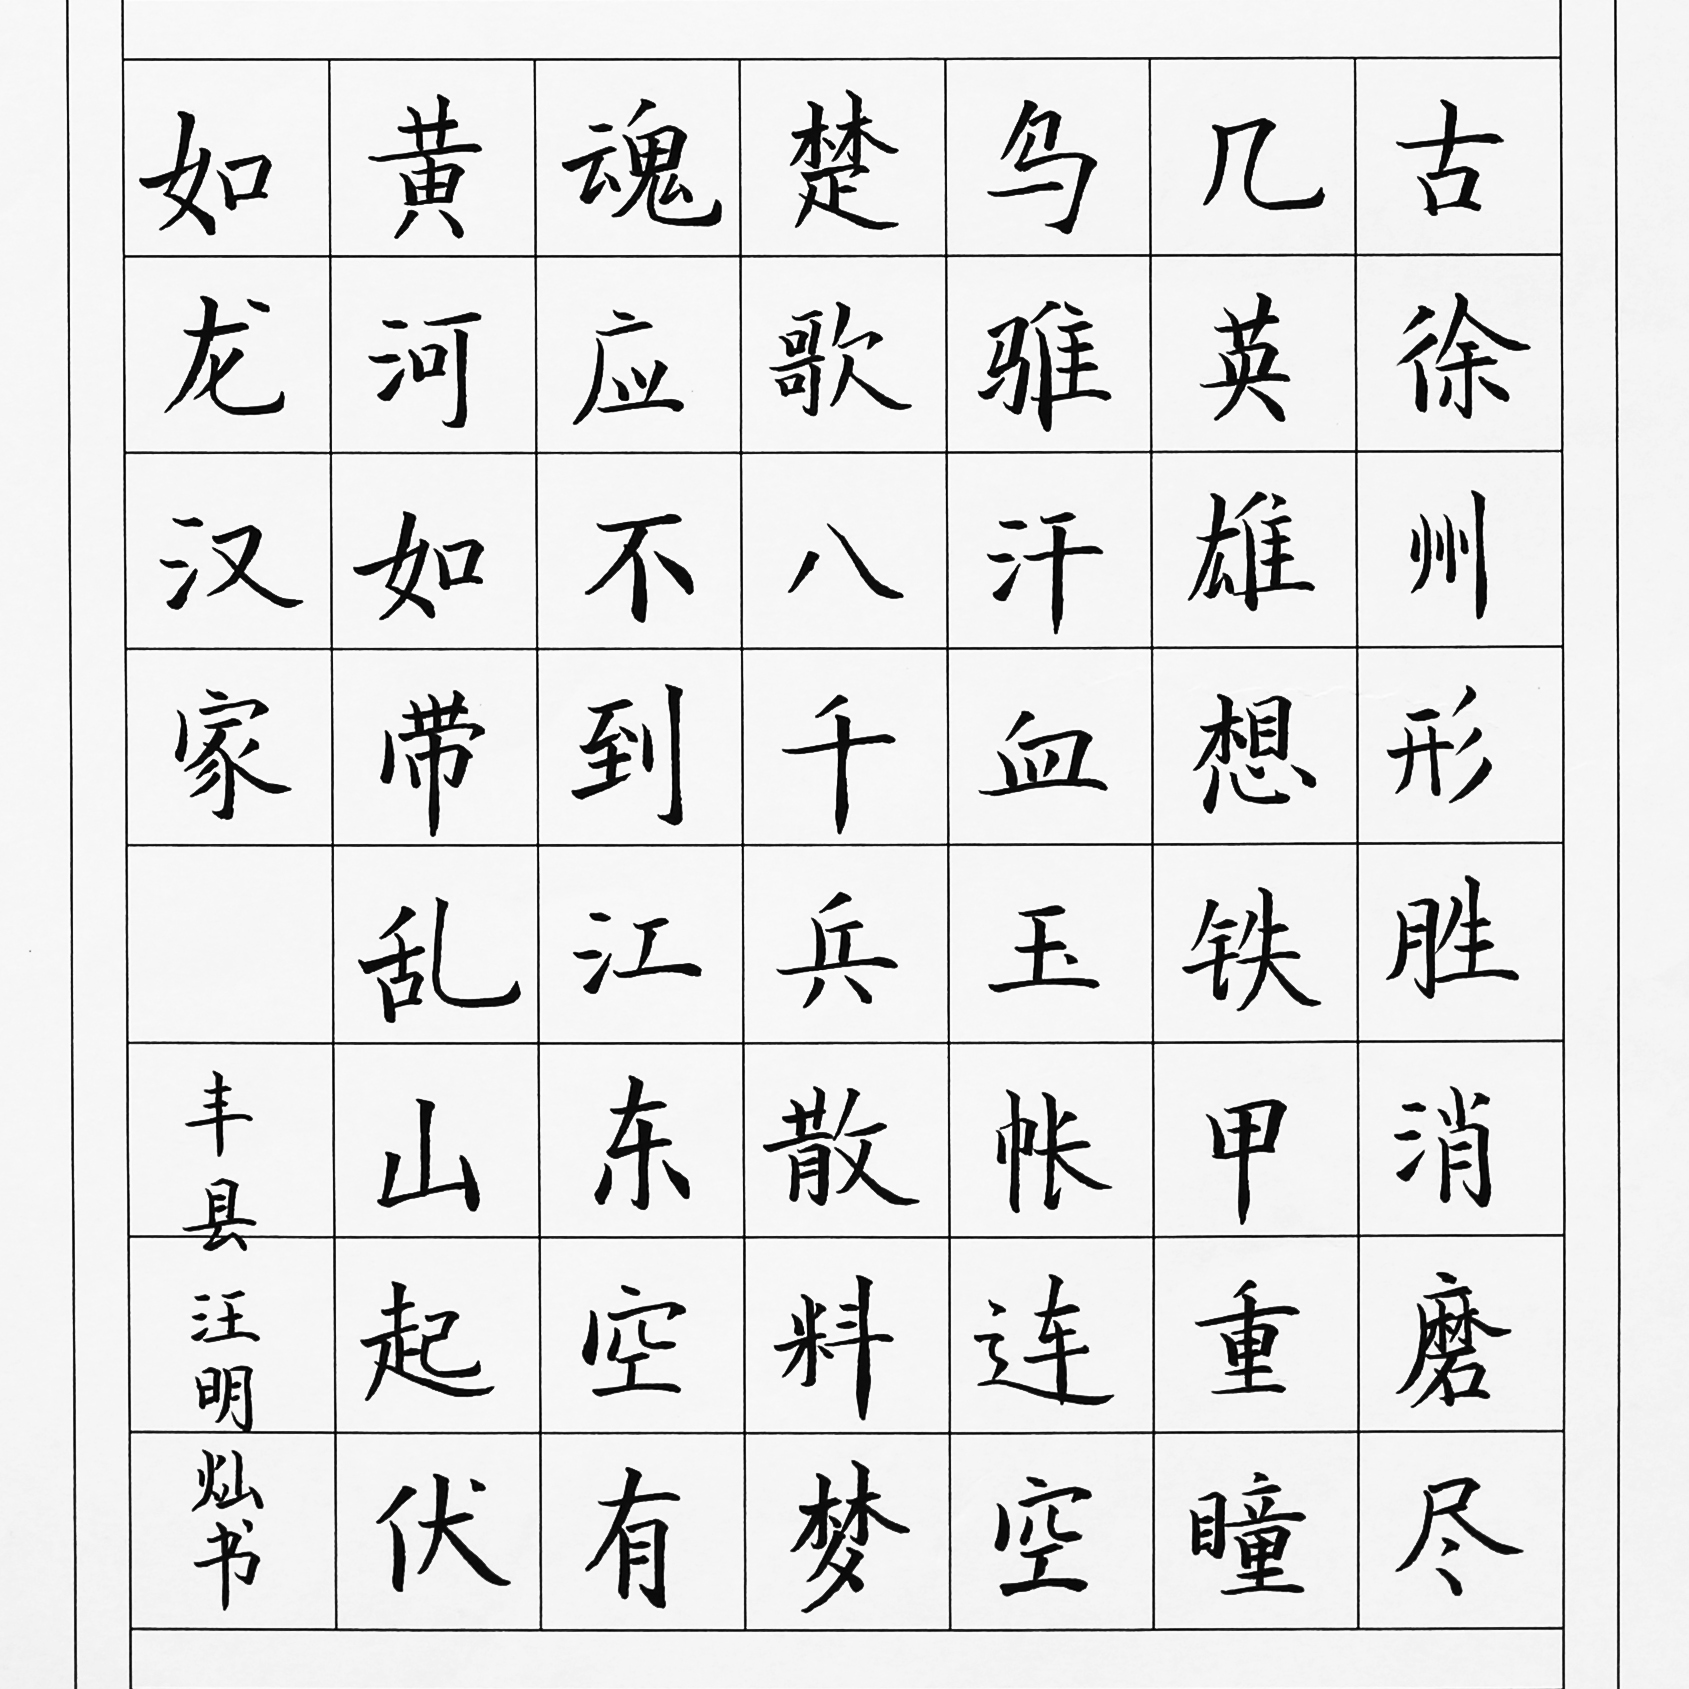 古徐州形胜消磨尽
几英雄想铁甲重瞳
乌骓汗血玉帐连空
楚歌八千兵散料梦
魂应不到江东空有
黄河如带乱山起伏
如龙汉家
丰县汪明灿书